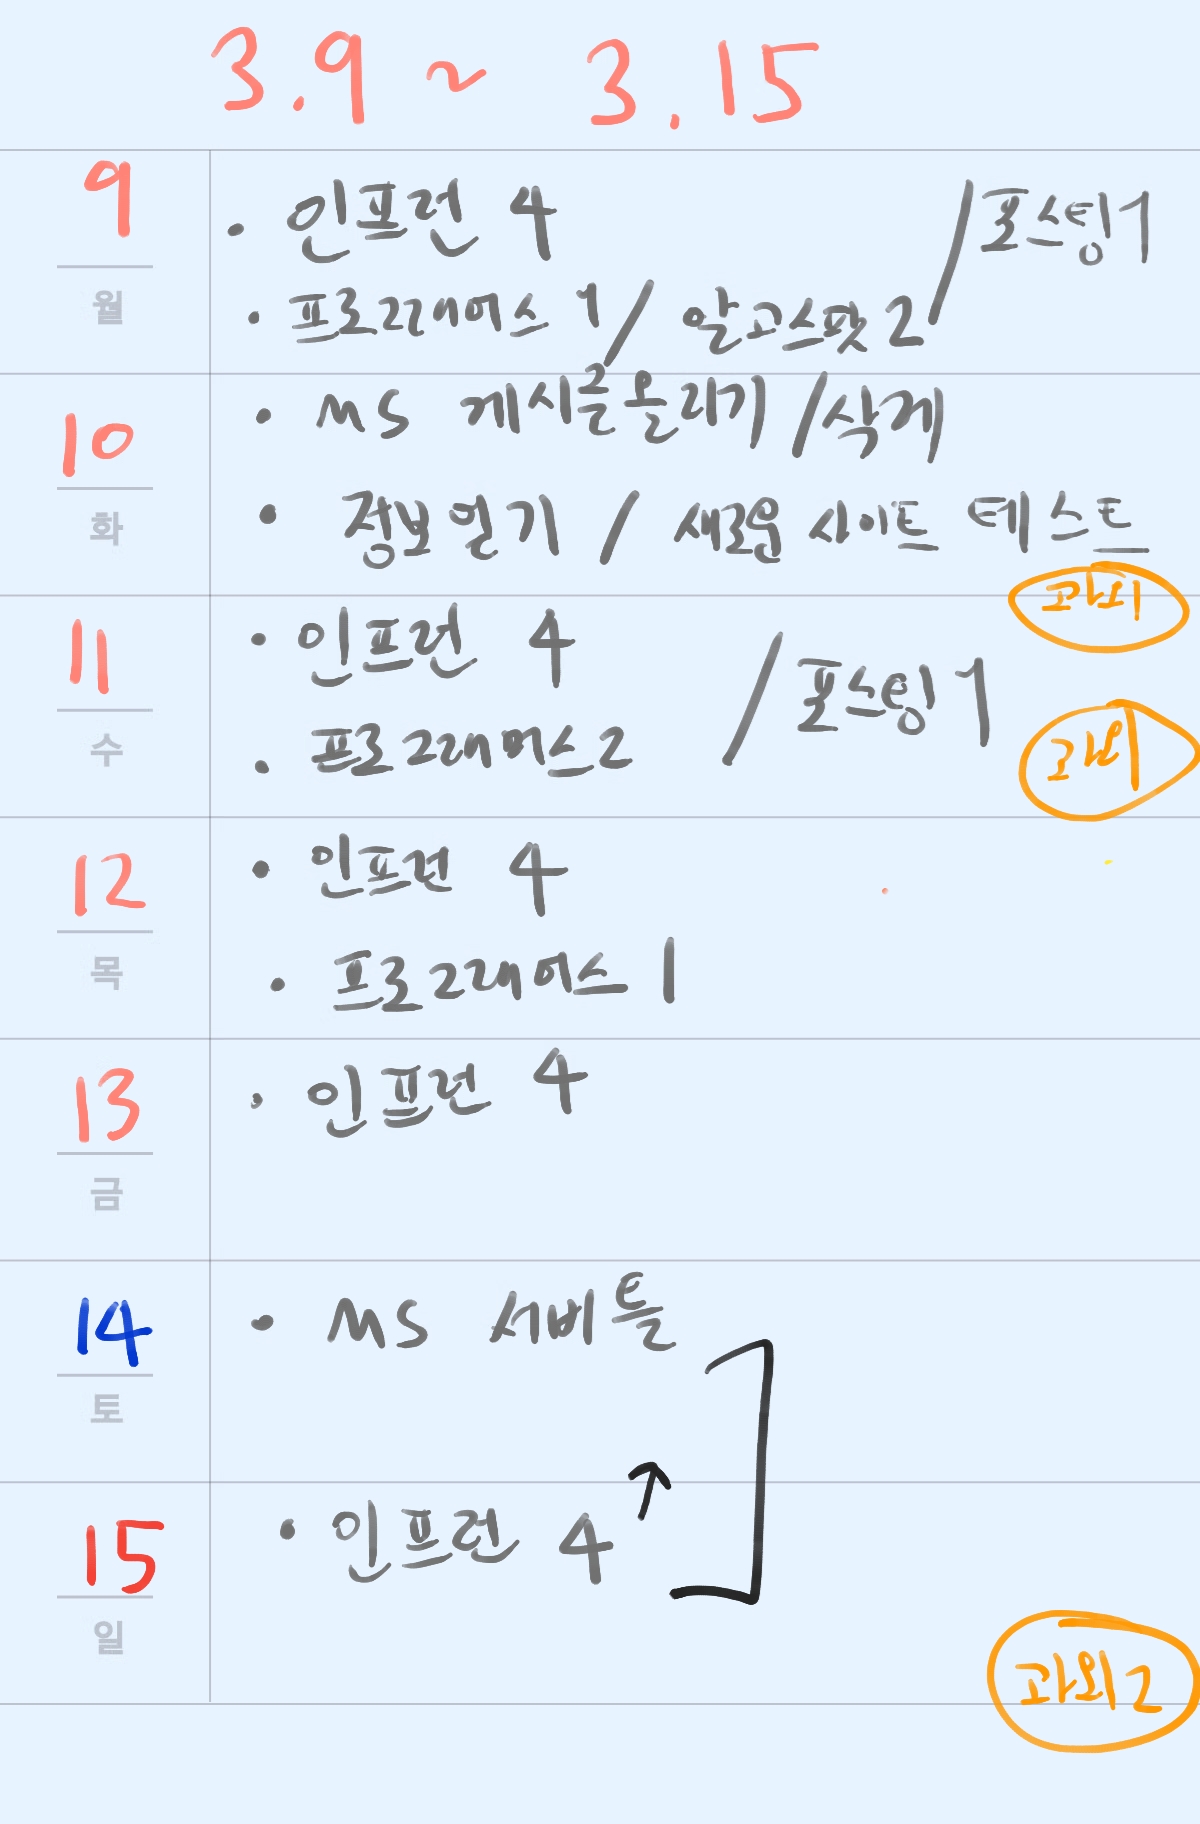 3.9 ~ 3.15
9
월
· 인프런 4
· 프로그래머스 1 / 알고스팟 2 / 포스팅 1
10
화
· MS 게시글 올리기 / 삭제
· 정보 얻기 / 새로운 사이트 테스트
과외
11
수
· 인프런 4
· 프로그래머스 2 / 포스팅 1
과외
12
목
· 인프런 4
· 프로그래머스 1
13
금
· 인프런 4
14
토
· MS 서비틀
15
일
· 인프런 4 ↑
과외 2